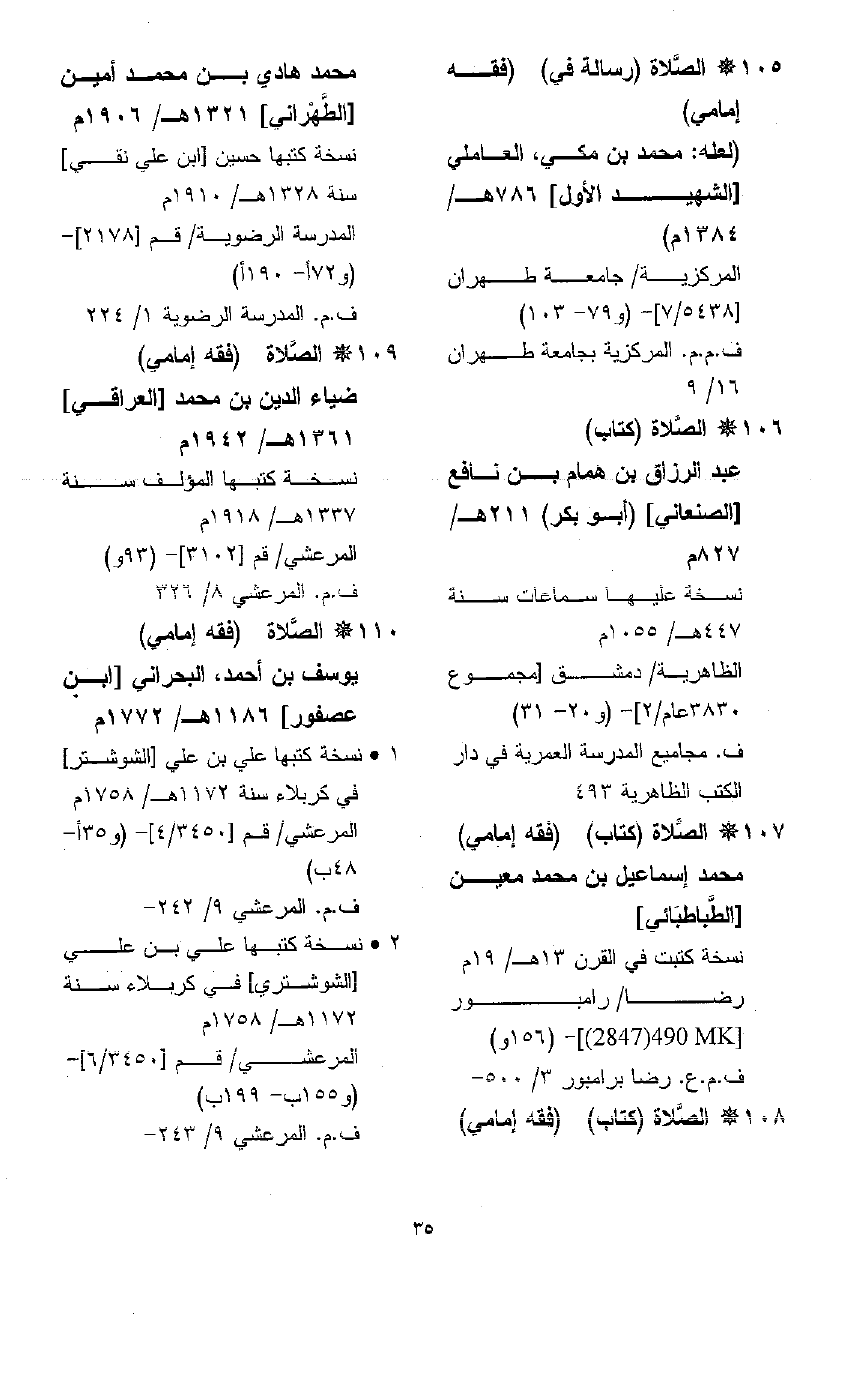 ١٠٥ ❋ الصَّلاة (رسالة في) (فقه
إمامي)
(لعله: محمد بن مكي، العاملي
[الشهيد الأول] ٧٨٦هـ/
١٣٨٤م)
المركزية/ جامعة طهران
[٧/٥٤٣٨]- (و٧٩- ١٠٣)
ف.م.م. المركزية بجامعة طهران
١٦/ ٩
١٠٦ ❋ الصَّلاة (كتاب)
عبد الرزاق بن همام بن نافع
[الصنعاني] (أبو بكر) ٢١١هـ/
٨٢٧م
نسخة عليها سماعات سنة
٤٤٧هـ/ ١٠٥٥م
الظاهرية/ دمشق [مجموع
٣٨٣٠عام/٢]- (و٢٠- ٣١)
ف. مجاميع المدرسة العمرية في دار
الكتب الظاهرية ٤٩٣
١٠٧ ❋ الصَّلاة (كتاب) (فقه إمامي)
محمد إسماعيل بن محمد معين
[الطَّباطبَائي]
نسخة كتبت في القرن ١٣هـ/ ١٩م
رضا/ رامبور
[490 MK(2847)]- (١٥٦و)
ف.م.ع. رضا برامبور ٣/ ٥٠٠-
١٠٨ ❋ الصَّلاة (كتاب) (فقه إمامي)
محمد هادي بن محمد أمين
[الطَّهْراني] ١٣٢١هـ/ ١٩٠٦م
نسخة كتبها حسين [ابن علي نقي]
سنة ١٣٢٨هـ/ ١٩١٠م
المدرسة الرضوية/ قم [٢١٧٨]-
(و٧٢أ- ١٩٠أ)
ف.م. المدرسة الرضوية ١/ ٢٢٤
١٠٩ ❋ الصَّلاة (فقه إمامي)
ضياء الدين بن محمد [العراقي]
١٣٦١هـ/ ١٩٤٢م
نسخة كتبها المؤلف سنة
١٣٣٧هـ/ ١٩١٨م
المرعشي/ قم [٣١٠٢]- (٩٣و)
ف.م. المرعشي ٨/ ٣٢٦
١١٠ ❋ الصَّلاة (فقه إمامي)
يوسف بن أحمد، البحراني [ابن
عصفور] ١١٨٦هـ/ ١٧٧٢م
١ • نسخة كتبها علي بن علي [الشوشتر]
في كربلاء سنة ١١٧٢هـ/ ١٧٥٨م
المرعشي/ قم [٤/٣٤٥٠]- (و٣٥أ-
٤٨ب)
ف.م. المرعشي ٩/ ٢٤٢-
٢ • نسخة كتبها علي بن علي
[الشوشتري] في كربلاء سنة
١١٧٢هـ/ ١٧٥٨م
المرعشي/ قم [٦/٣٤٥٠]-
(و١٥٥ب- ١٩٩ب)
ف.م. المرعشي ٩/ ٢٤٣-
٣٥